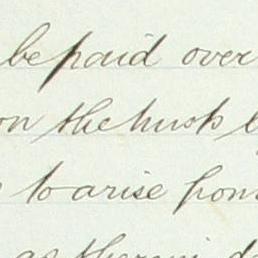 be paid over
on the trusts
to arise from
as therein d